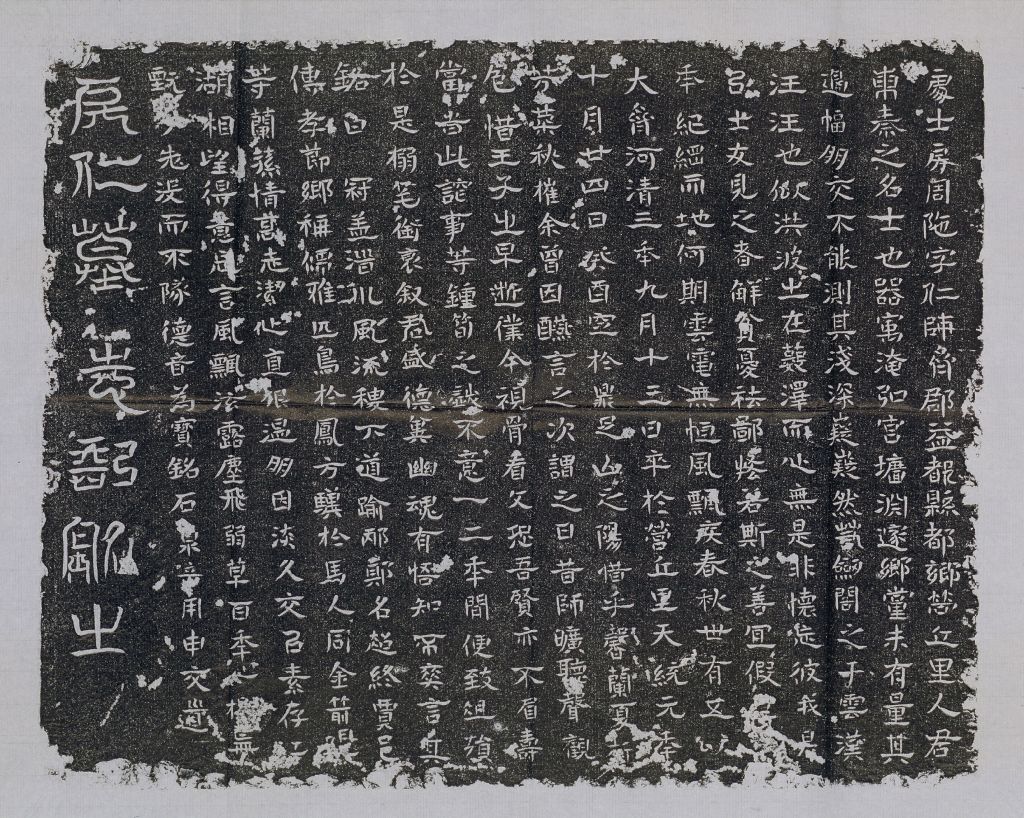 處士房周陁字仁師齊郡益都縣都鄉營丘里人君
東秦之名士也器寓淹弘宮墻淵邃鄉黨未有量其
邊幅朋交不能測其淺深嶷嶷然藏劒閣之于雲漢
汪汪也似洪波之在藪澤而心無是非懷恁彼我
邑士友見之者解貪憂祛鄙悋若斯之善宜假
年紀綱而地何期雲電無恒風飄疾春秋世有五以
大齊河清三年九月十三日卒於營丘里天統元年
十月廿四日癸酉窆於鼎足山之陽惜乎馨蘭夏
芳菜秋摧余曾因醼言之次謂之曰昔師曠聽聲觀
色惜王子之早逝僕今視骨看文恐吾賢亦不眉壽
當尚此談事等鍾荀之戲不意一二年間便致俎殞
於是搦笔銜哀叙君盛德冀幽魂有悟知不爽言其
銘曰 冠盖淄川風流稷下道踰邴鄭名超終賈邑
傳孝節鄉稱儒雅匹鳥於鳳方驥於馬人同金箭
等蘭蓀情高志潔心直根温朋因淡久交以素存
湖相望得意忘言風飄泫露塵飛弱草百年
先没而不隊德音為寶銘石泉 用申交
房仁墓